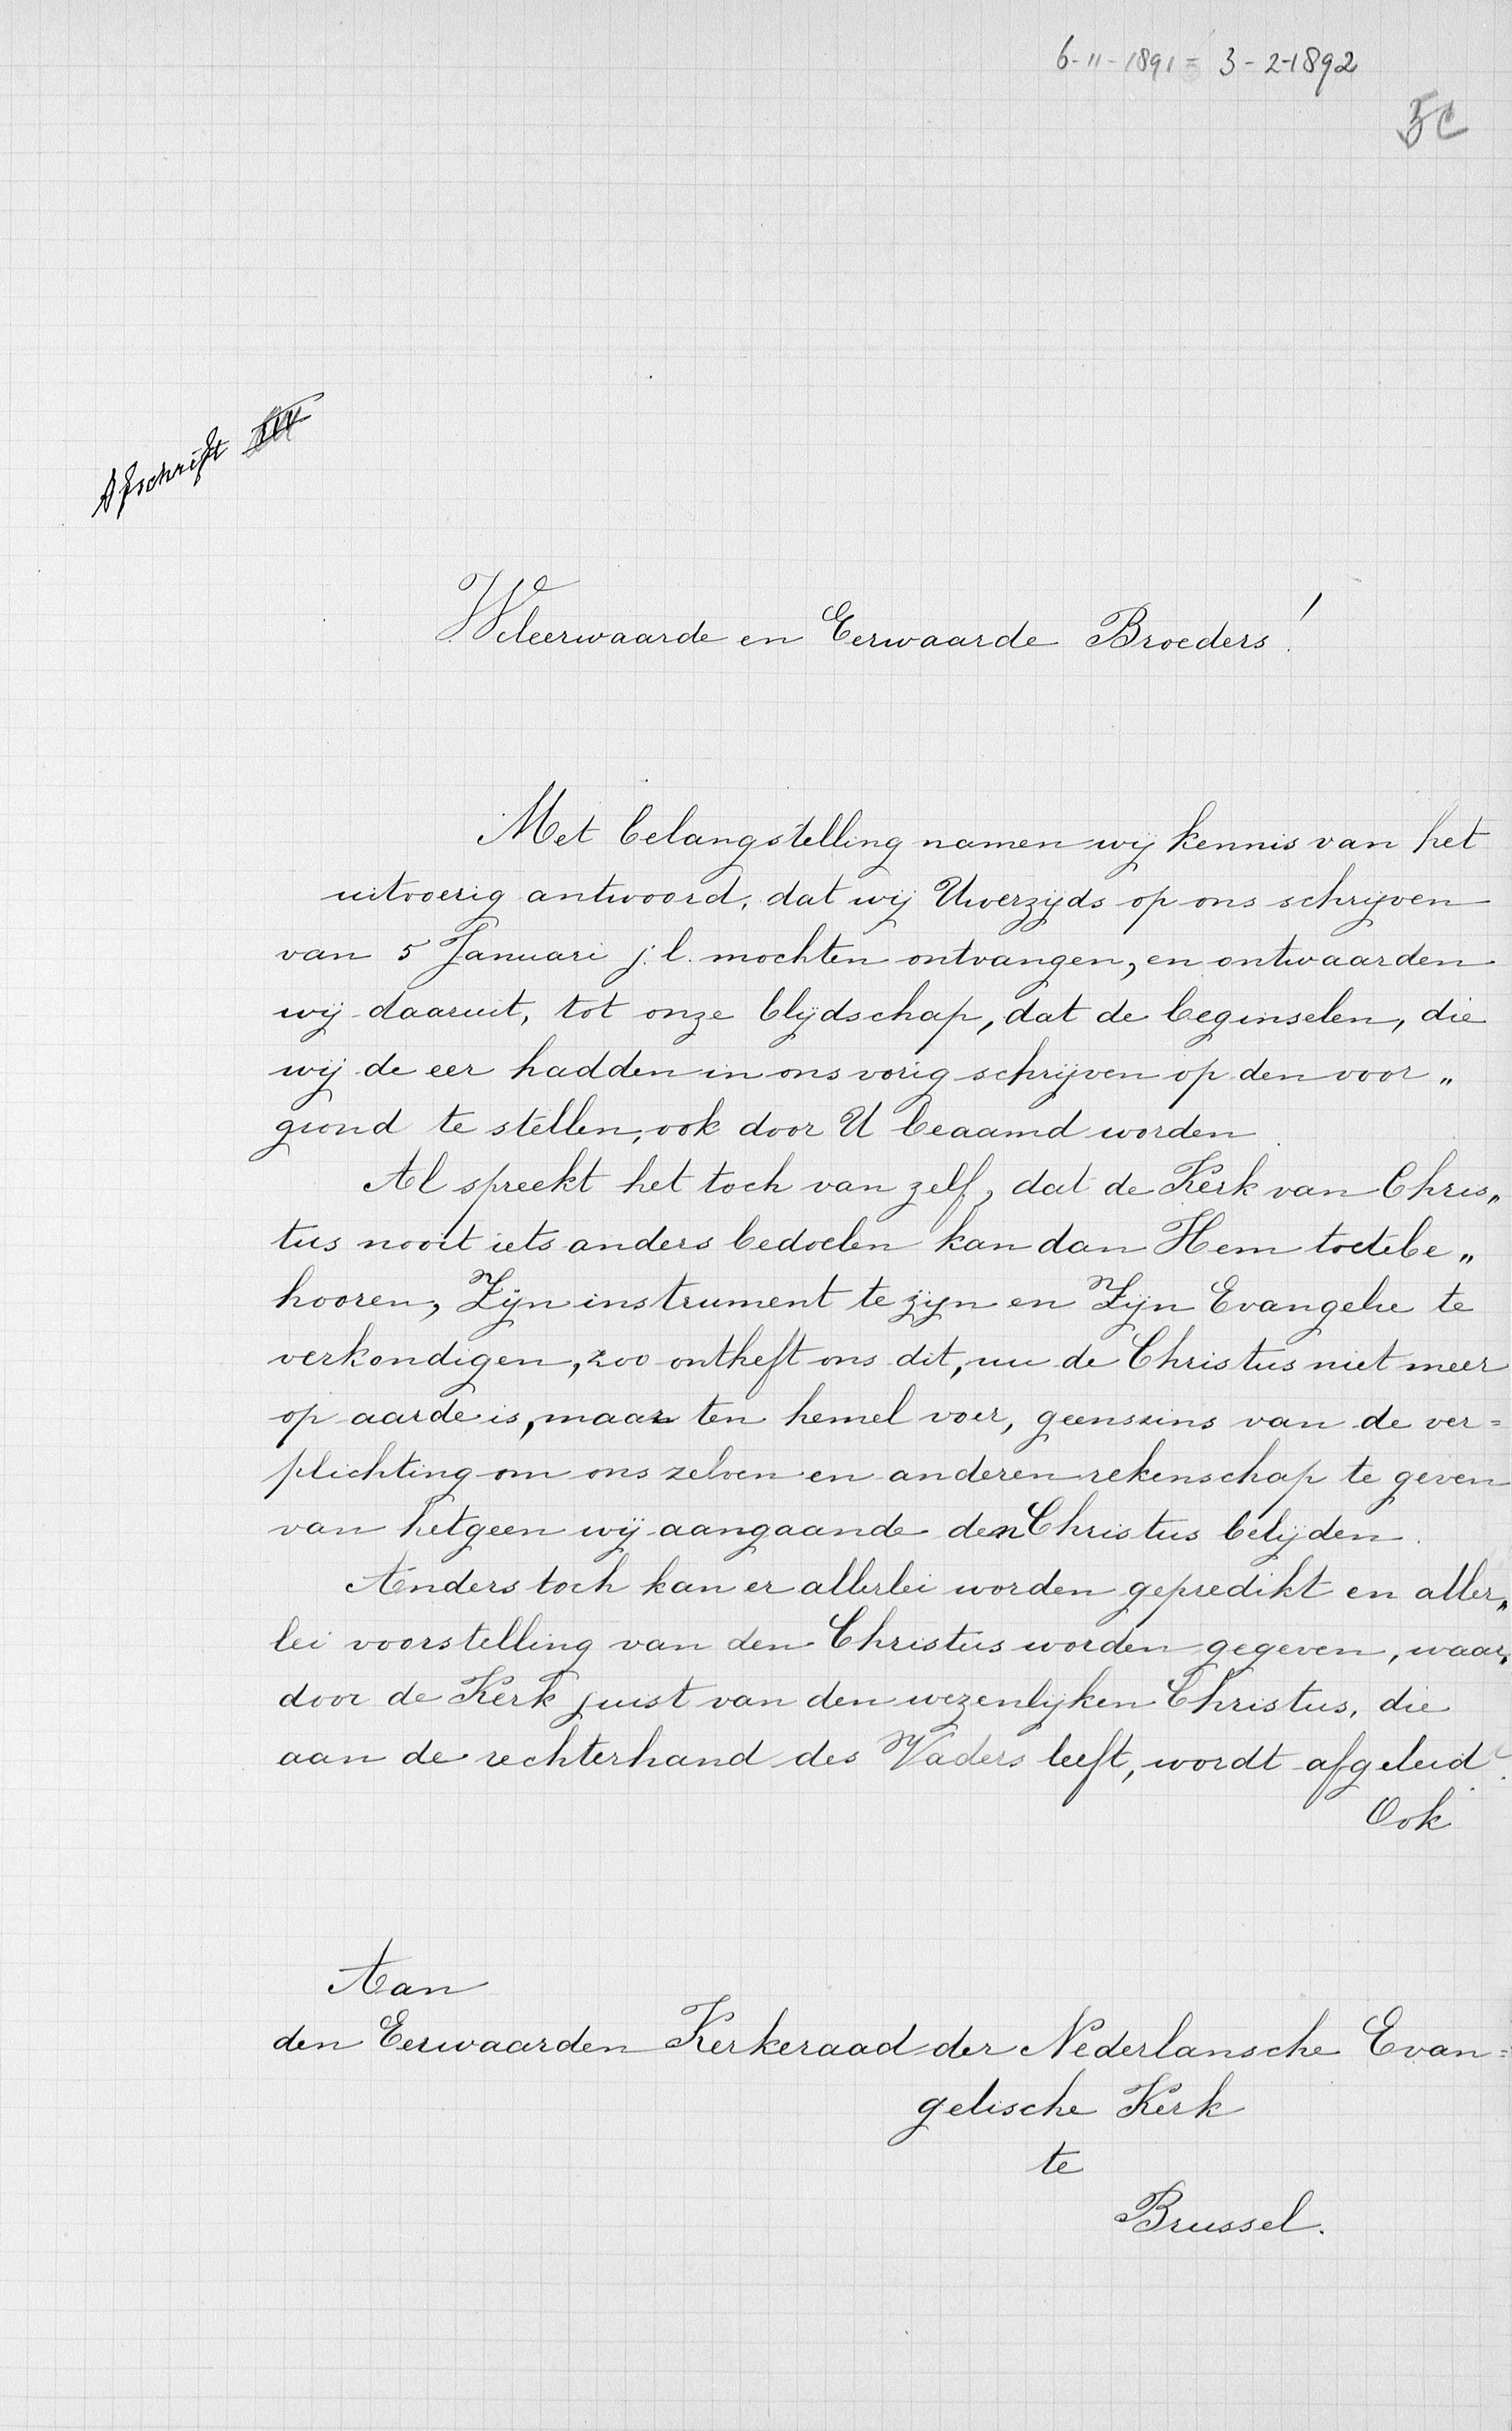 6-11-1891 = 3-2-1892
5c
Afschrift
Weleerwaarde en Eerwaarde Broeders!
Met belangstelling namen wij kennis van het
uitvoerig antwoord, dat wij Uwerzijds op ons schrijven
van 5 Januari j.l. mochten ontvangen, en ontwaarden
wij daaruit, tot onze blijdschap, dat de beginselen, die
wij de eer hadden in ons vorig schrijven op den voor„
grond te stellen, ook door U beaamd worden.
Al spreekt het toch van zelf, dat de Kerk van Chris„
tus nooit iets anders bedoelen kan dan Hem toetebe„
hooren, Zijn instrument te zijn en Zijn Evangelie te
verkondigen, zoo ontheft ons dit, nu de Christus niet meer
op aarde is, maar ten hemel voer, geenszins van de ver=
plichting om ons zelven en anderen rekenschap te geven
van hetgeen wij aangaande den Christus belijden.
Anders toch kan er allerlei worden gepredikt en aller„
lei voorstelling van den Christus worden gegeven, waar„
door de Kerk juist van den wezenlijken Christus, die
aan de rechterhand des Vaders leeft, wordt afgeleid.
Ook
Aan
den Eerwaarden Kerkeraad der Nederlansche Evan=
gelische Kerk
te
Brussel.